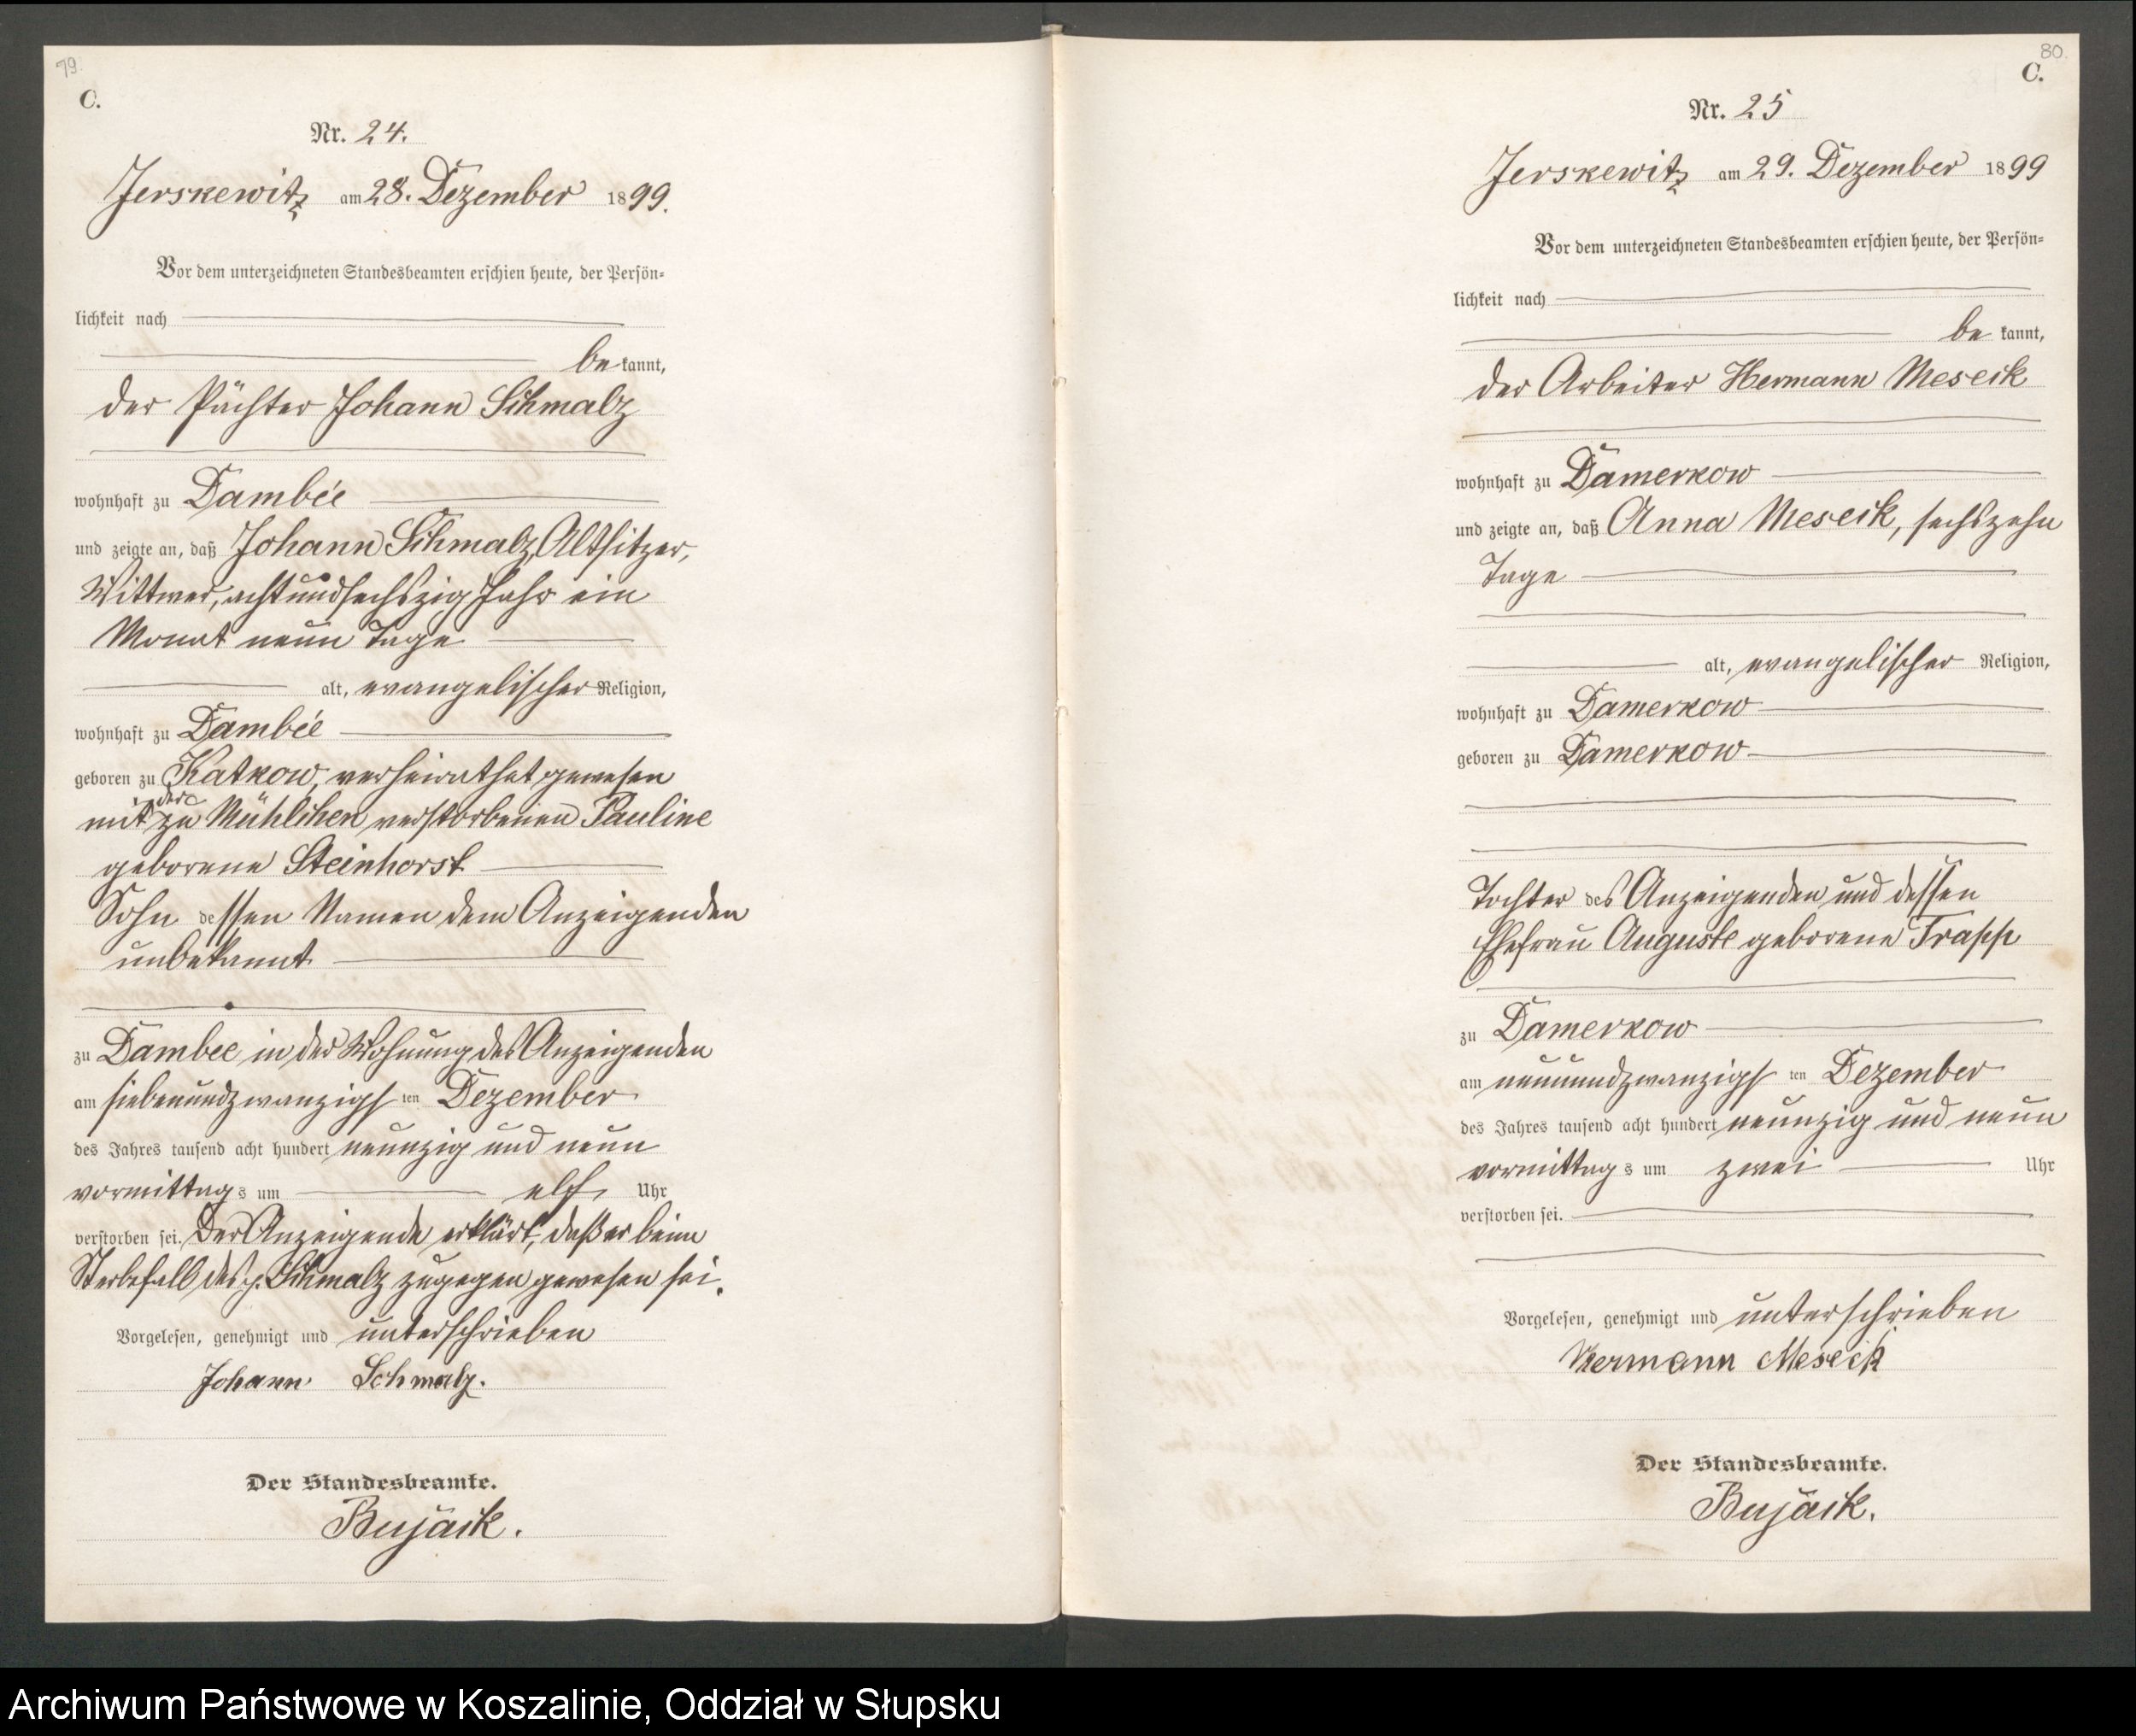 79.
C.
Nr. 24.
Jerskewitz am 28. Dezember 1899.
Vor dem unterzeichneten Standesbeamten erschien heute, der Persön-
lichkeit nach
be kannt,
der Pächter Johann Schmalz
wohnhaft zu Dambee
und zeigte an, daß Johann Schmalz, Altsitzer,
Wittwer, achtundsechszig Jahr ein
Monat neun Tage
alt, evangelischer Religion,
wohnhaft zu Dambee
geboren zu Katkow, verheirathet gewesen
mit der zu Mühlchen verstorbenen Pauline
geborene Steinhorst
Sohn dessen Namen dem Anzeigenden
unbekannt
zu Dambee in der Wohnung des Anzeigenden
am siebenundzwanzigsten Dezember
des Jahres tausend acht hundert neunzig und neun
vormittags um elf Uhr
verstorben sei. Der Anzeigende erklärt, daß er beim
Sterbefall des p. Schmalz zugegen gewesen sei.
Vorgelesen, genehmigt und unterschrieben
Johann Schmalz.
Der Standesbeamte.
Bujäck.
80.
C.
Nr. 25
Jerskewitz am 29. Dezember 1899
Vor dem unterzeichneten Standesbeamten erschien heute, der Persön-
lichkeit nach
be kannt,
der Arbeiter Hermann Meseck
wohnhaft zu Damerkow
und zeigte an, daß Anna Meseck, sechszehn
Tage
alt, evangelischer Religion,
wohnhaft zu Damerkow
geboren zu Damerkow
Tochter des Anzeigenden und dessen
Ehefrau Auguste geborene Trapp
zu Damerkow
am neunundzwanzigsten Dezember
des Jahres tausend acht hundert neunzig und neun
vormittags um zwei Uhr
verstorben sei.
Vorgelesen, genehmigt und unterschrieben
Hermann Meseck
Der Standesbeamte.
Bujäck.
Archiwum Państwowe w Koszalinie, Oddział w Słupsku